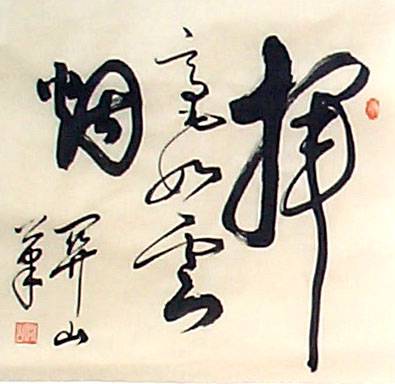 揮
毫如雲
烟
山
筆